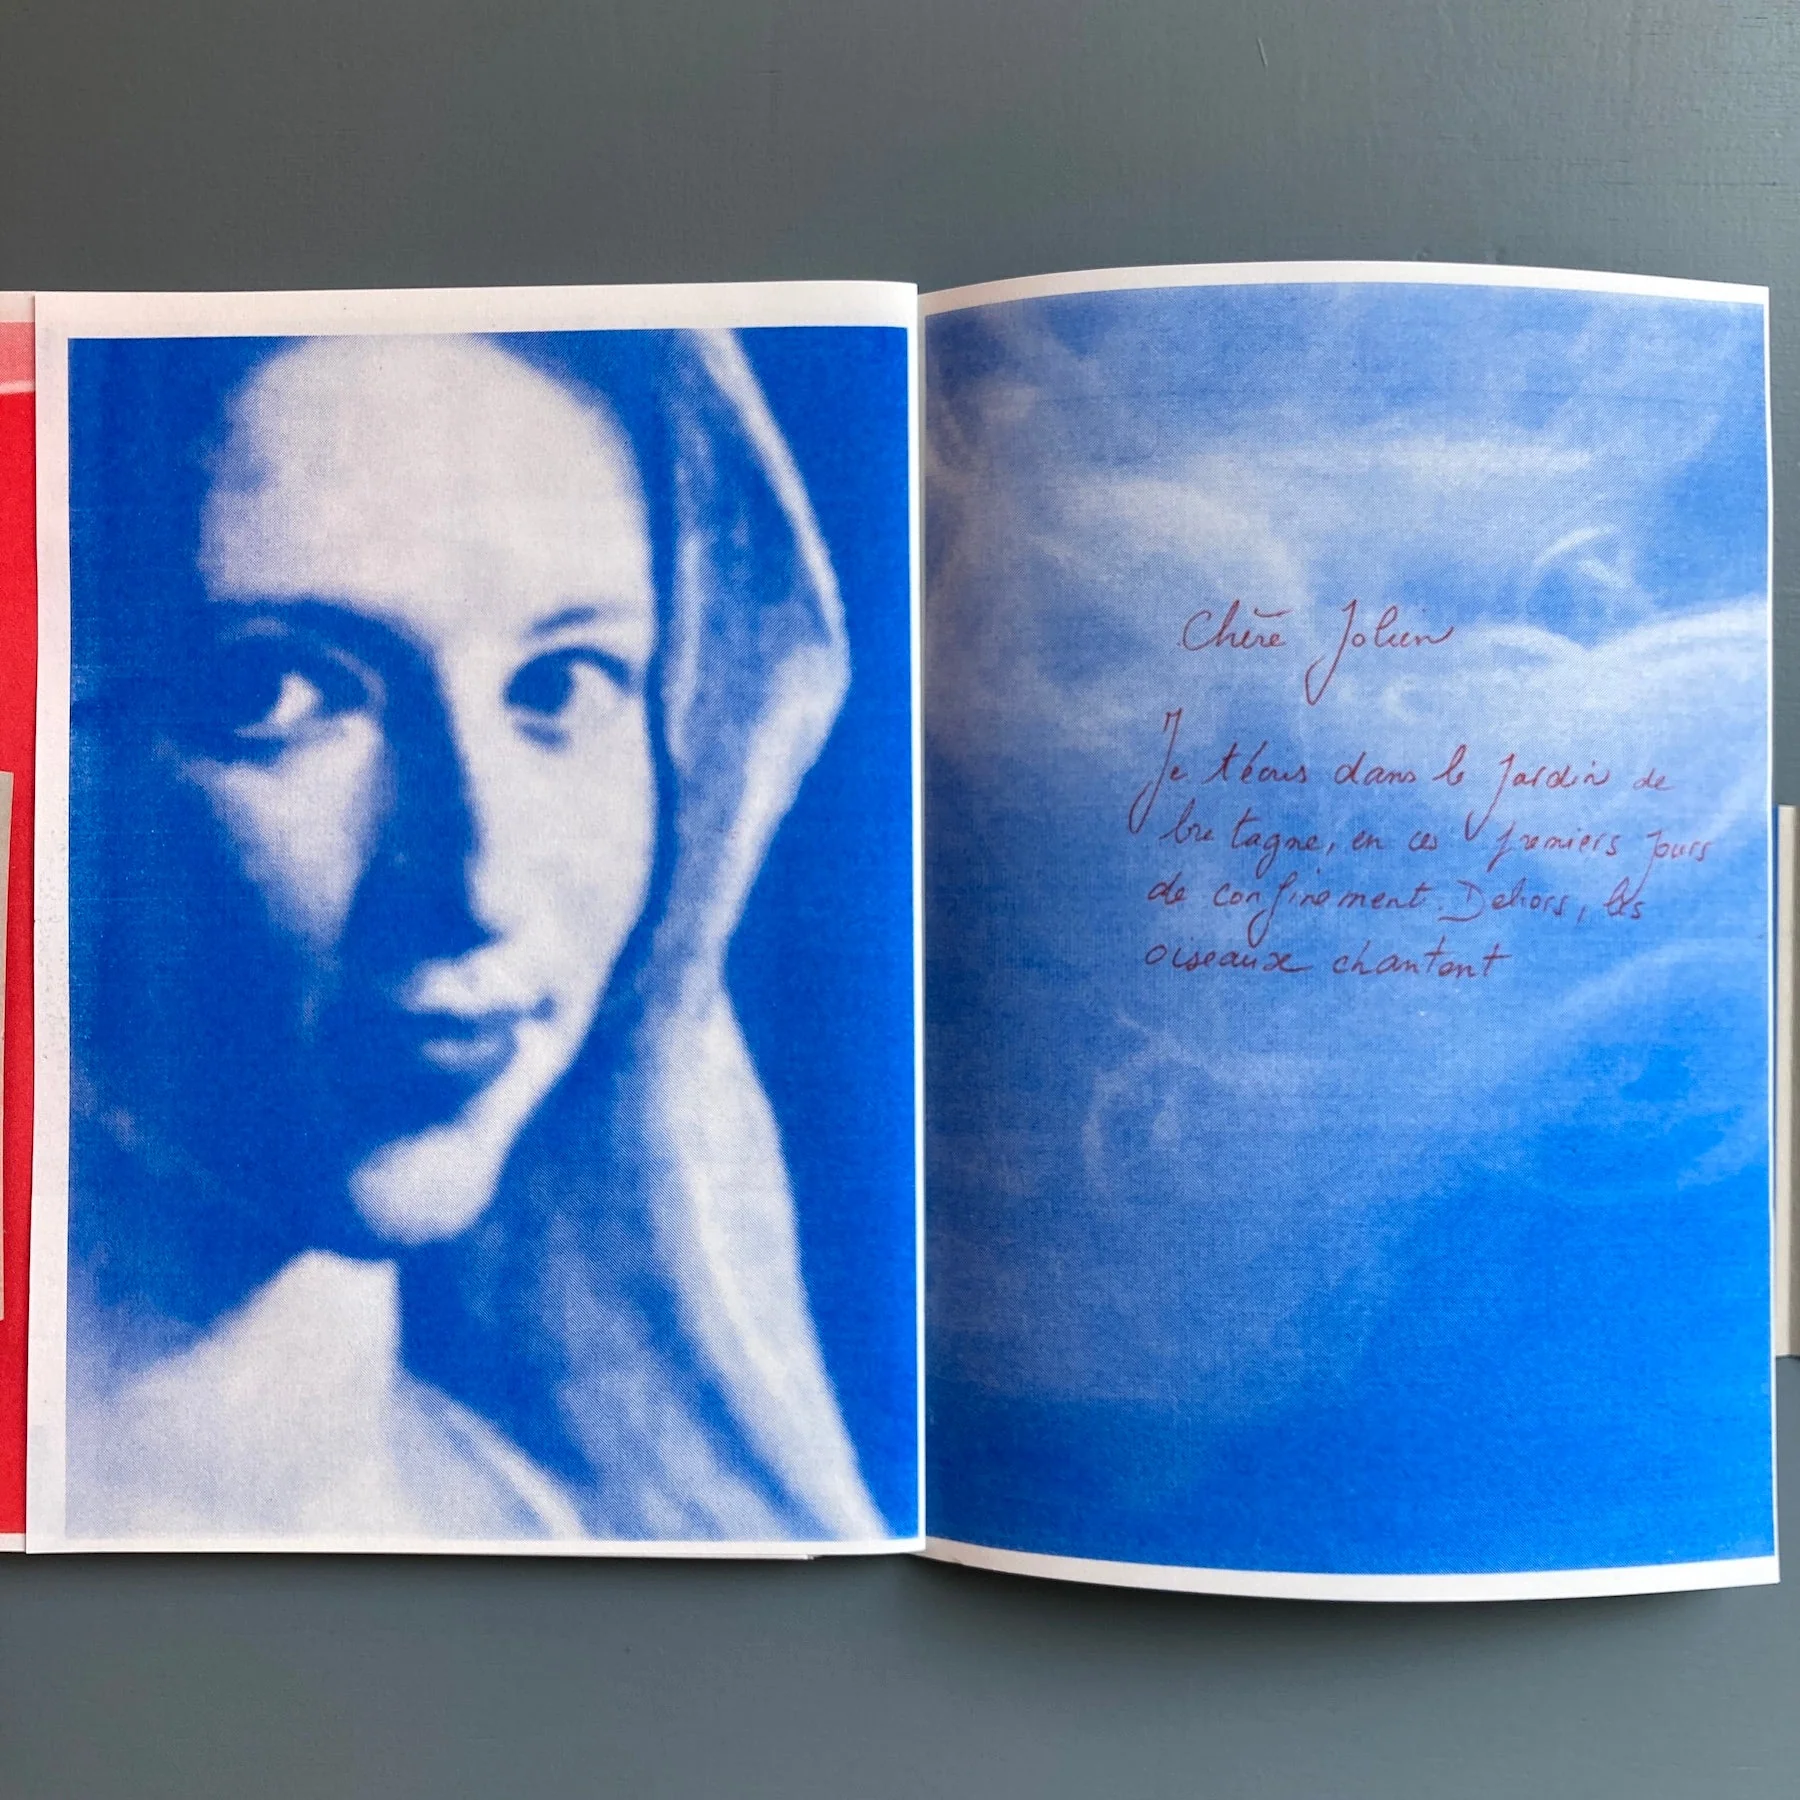 Chère Jolien
Je t'écris dans le jardin de
bretagne, en ces premiers jours
de confinement. Dehors, les
oiseaux chantent